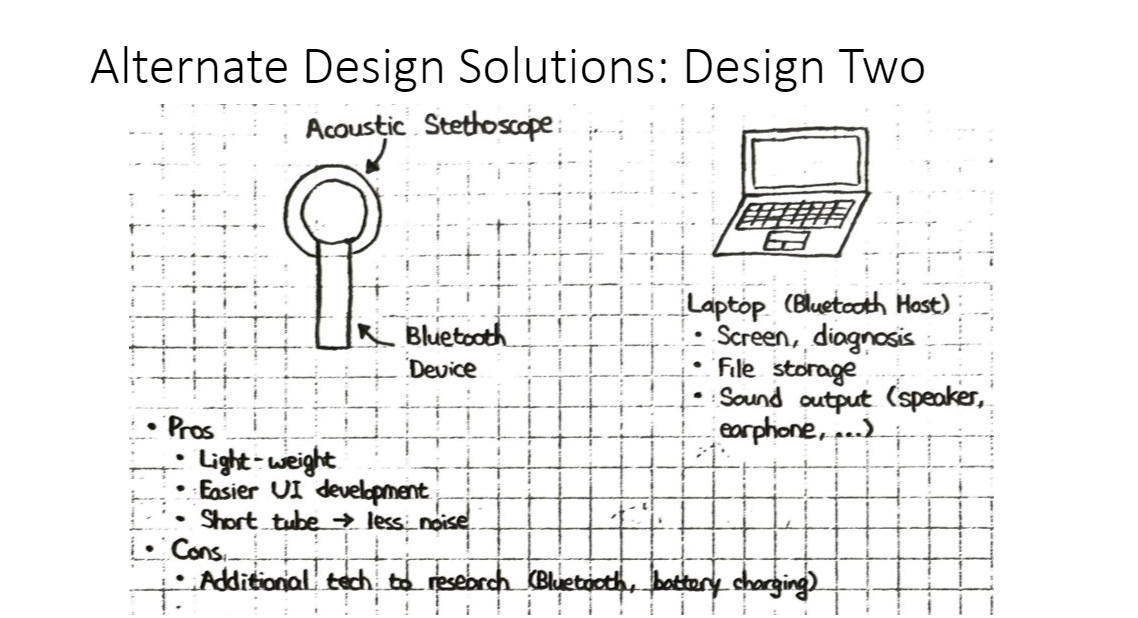 Alternate Design Solutions: Design Two
Acoustic Stethoscope
Bluetooth
Device
Laptop (Bluetooth Host)
• Screen, diagnosis
• File storage
• Sound output (speaker,
earphone, ...)
• Pros
• Light-weight
• Easier UI development
• Short tube → less noise
• Cons
• Additional tech to research (Bluetooth, battery charging)